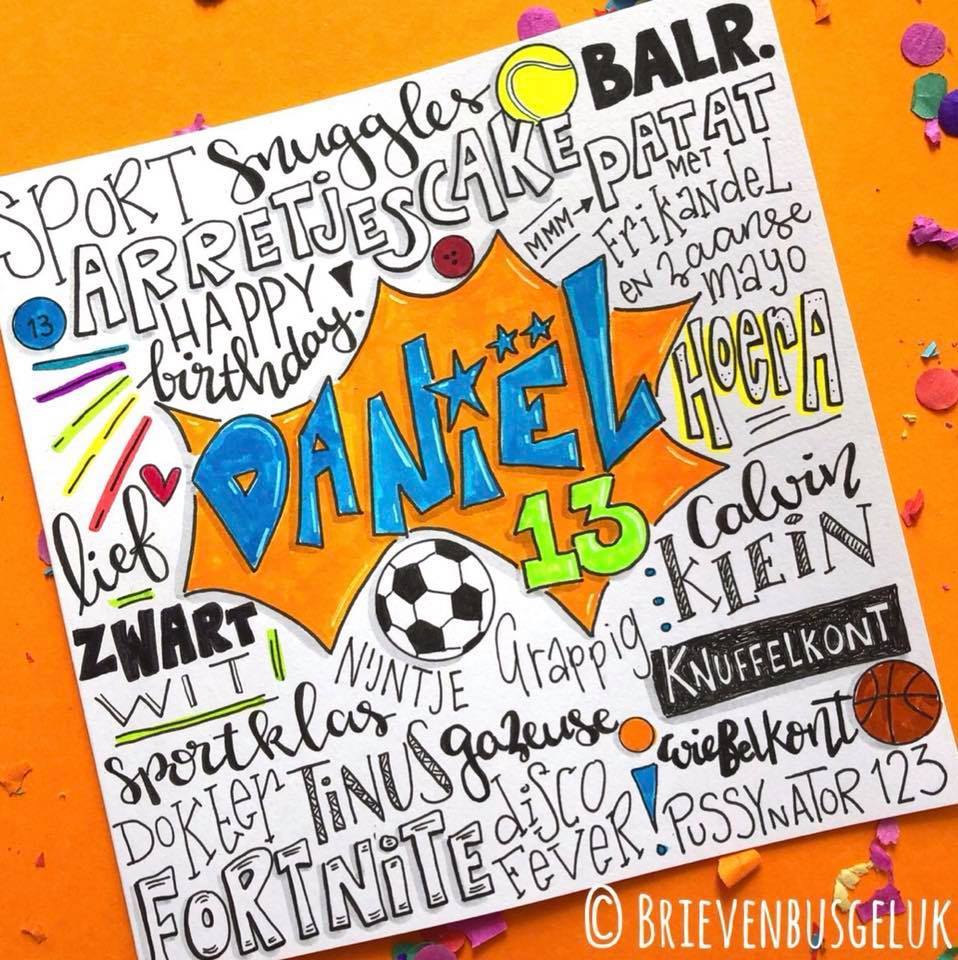 BALR.
SPORT
Snuggles
ARRETJESCAKE
MMM→ PATAT
MET
FRIKANDEL
EN Zaanse
mayo
HAPPY
birthday!
13
DANIËL
13
HOERA
lief
Calvin
KLEIN
ZWART
WIT
NIJNTJE
Grappig
KNUFFELKONT
sportklas
gazeuse
wiebelkont
DOKTER TINUS
disco
FEVER!
PUSSYNATOR 123
FORTNITE
© BRIEVENBUSGELUK